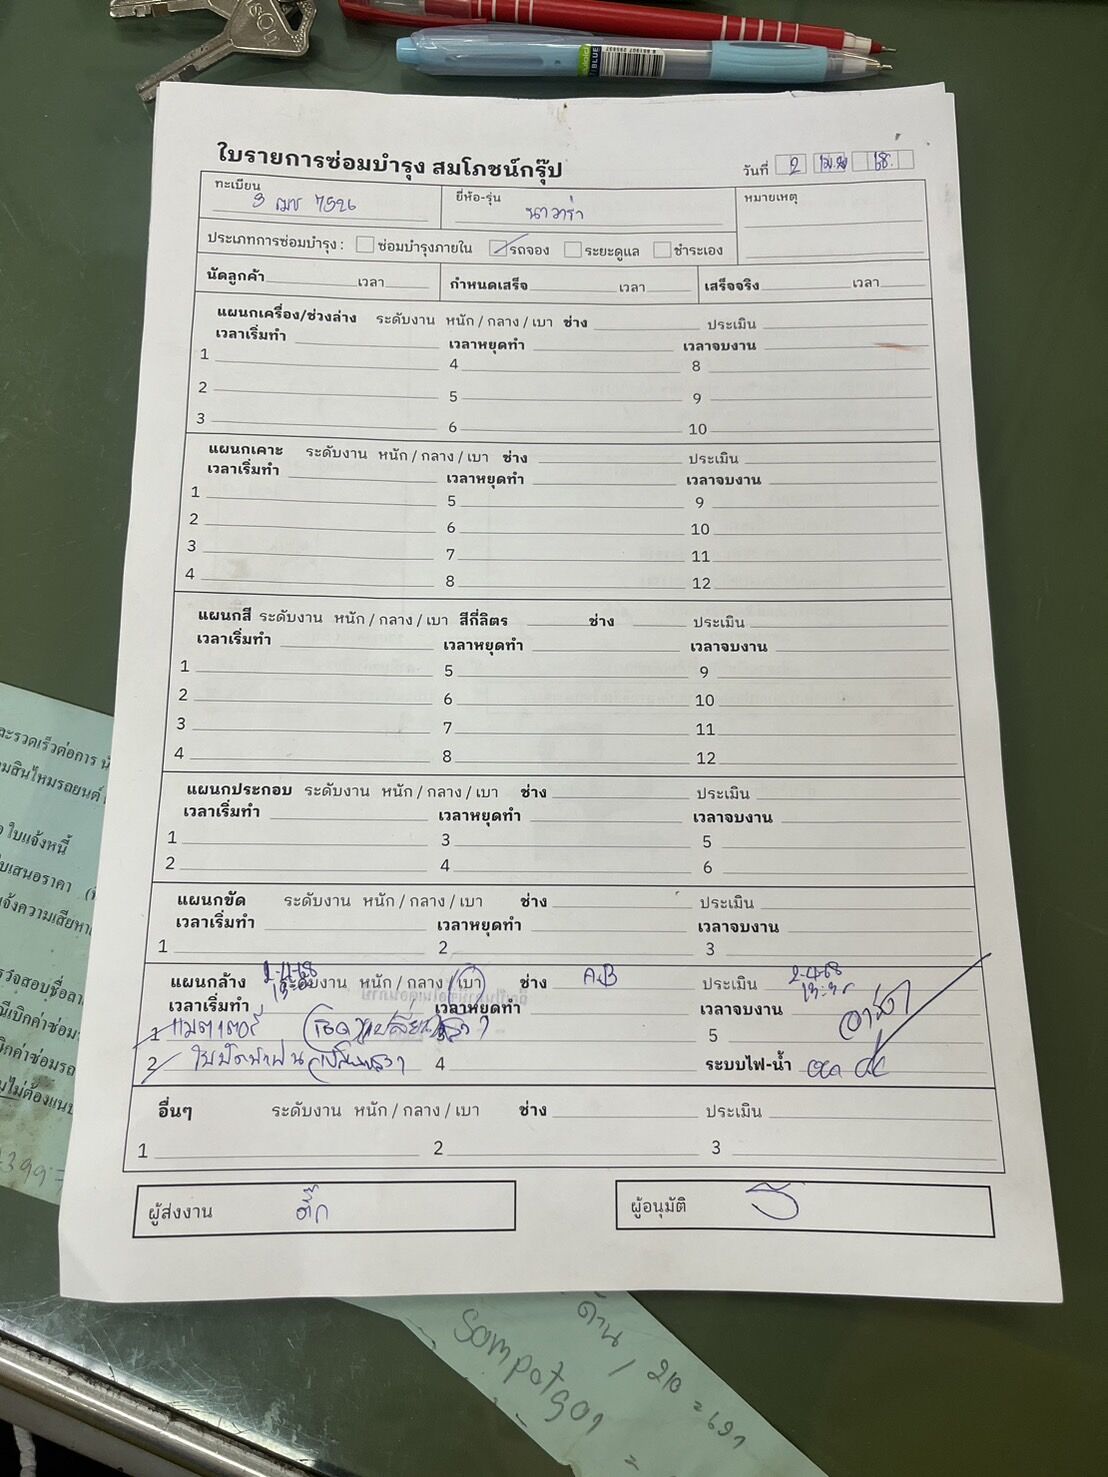 ใบรายการซ่อมบำรุง สมโภชน์กรุ๊ป
วันที่ 2 เม.ย 68.
ทะเบียน 3 ฒช 7526
ยี่ห้อ-รุ่น นาวาร่า
หมายเหตุ
ประเภทการซ่อมบำรุง : ซ่อมบำรุงภายใน รถจอง ระยะดูแล ชำระเอง
นัดลูกค้า เวลา กำหนดเสร็จ เวลา เสร็จจริง เวลา
แผนกเครื่อง/ช่วงล่าง ระดับงาน หนัก / กลาง / เบา ช่าง ประเมิน
เวลาเริ่มทำ เวลาหยุดทำ เวลาจบงาน
1 4 8
2 5 9
3 6 10
แผนกเคาะ ระดับงาน หนัก / กลาง / เบา ช่าง ประเมิน
เวลาเริ่มทำ เวลาหยุดทำ เวลาจบงาน
1 5 9
2 6 10
3 7 11
4 8 12
แผนกสี ระดับงาน หนัก / กลาง / เบา สีกี่ลิตร ช่าง ประเมิน
เวลาเริ่มทำ เวลาหยุดทำ เวลาจบงาน
1 5 9
2 6 10
3 7 11
4 8 12
แผนกประกอบ ระดับงาน หนัก / กลาง / เบา ช่าง ประเมิน
เวลาเริ่มทำ เวลาหยุดทำ เวลาจบงาน
1 3 5
2 4 6
แผนกขัด ระดับงาน หนัก / กลาง / เบา ช่าง ประเมิน
เวลาเริ่มทำ เวลาหยุดทำ เวลาจบงาน
1 2 3
แผนกล้าง 2-4-68 ระดับงาน หนัก / กลาง / เบา ช่าง ประเมิน 2-4-68
เวลาเริ่มทำ เวลาหยุดทำ เวลาจบงาน
1 แบตเตอรี่ 3 5
2 ใบปัดน้ำฝน 4 ระบบไฟ-น้ำ
อื่นๆ ระดับงาน หนัก / กลาง / เบา ช่าง ประเมิน
1 2 3
ผู้ส่งงาน ติ๊ก
ผู้อนุมัติ
ใบแจ้งหนี้
Sompotgor
ด้าน / 210